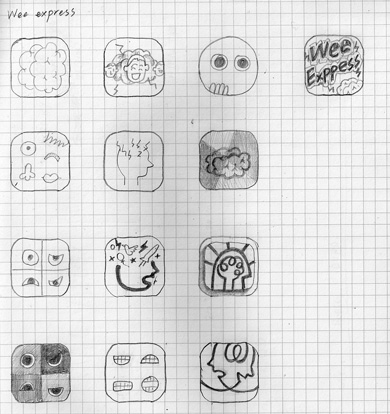 Wee express
Wee
Exppess